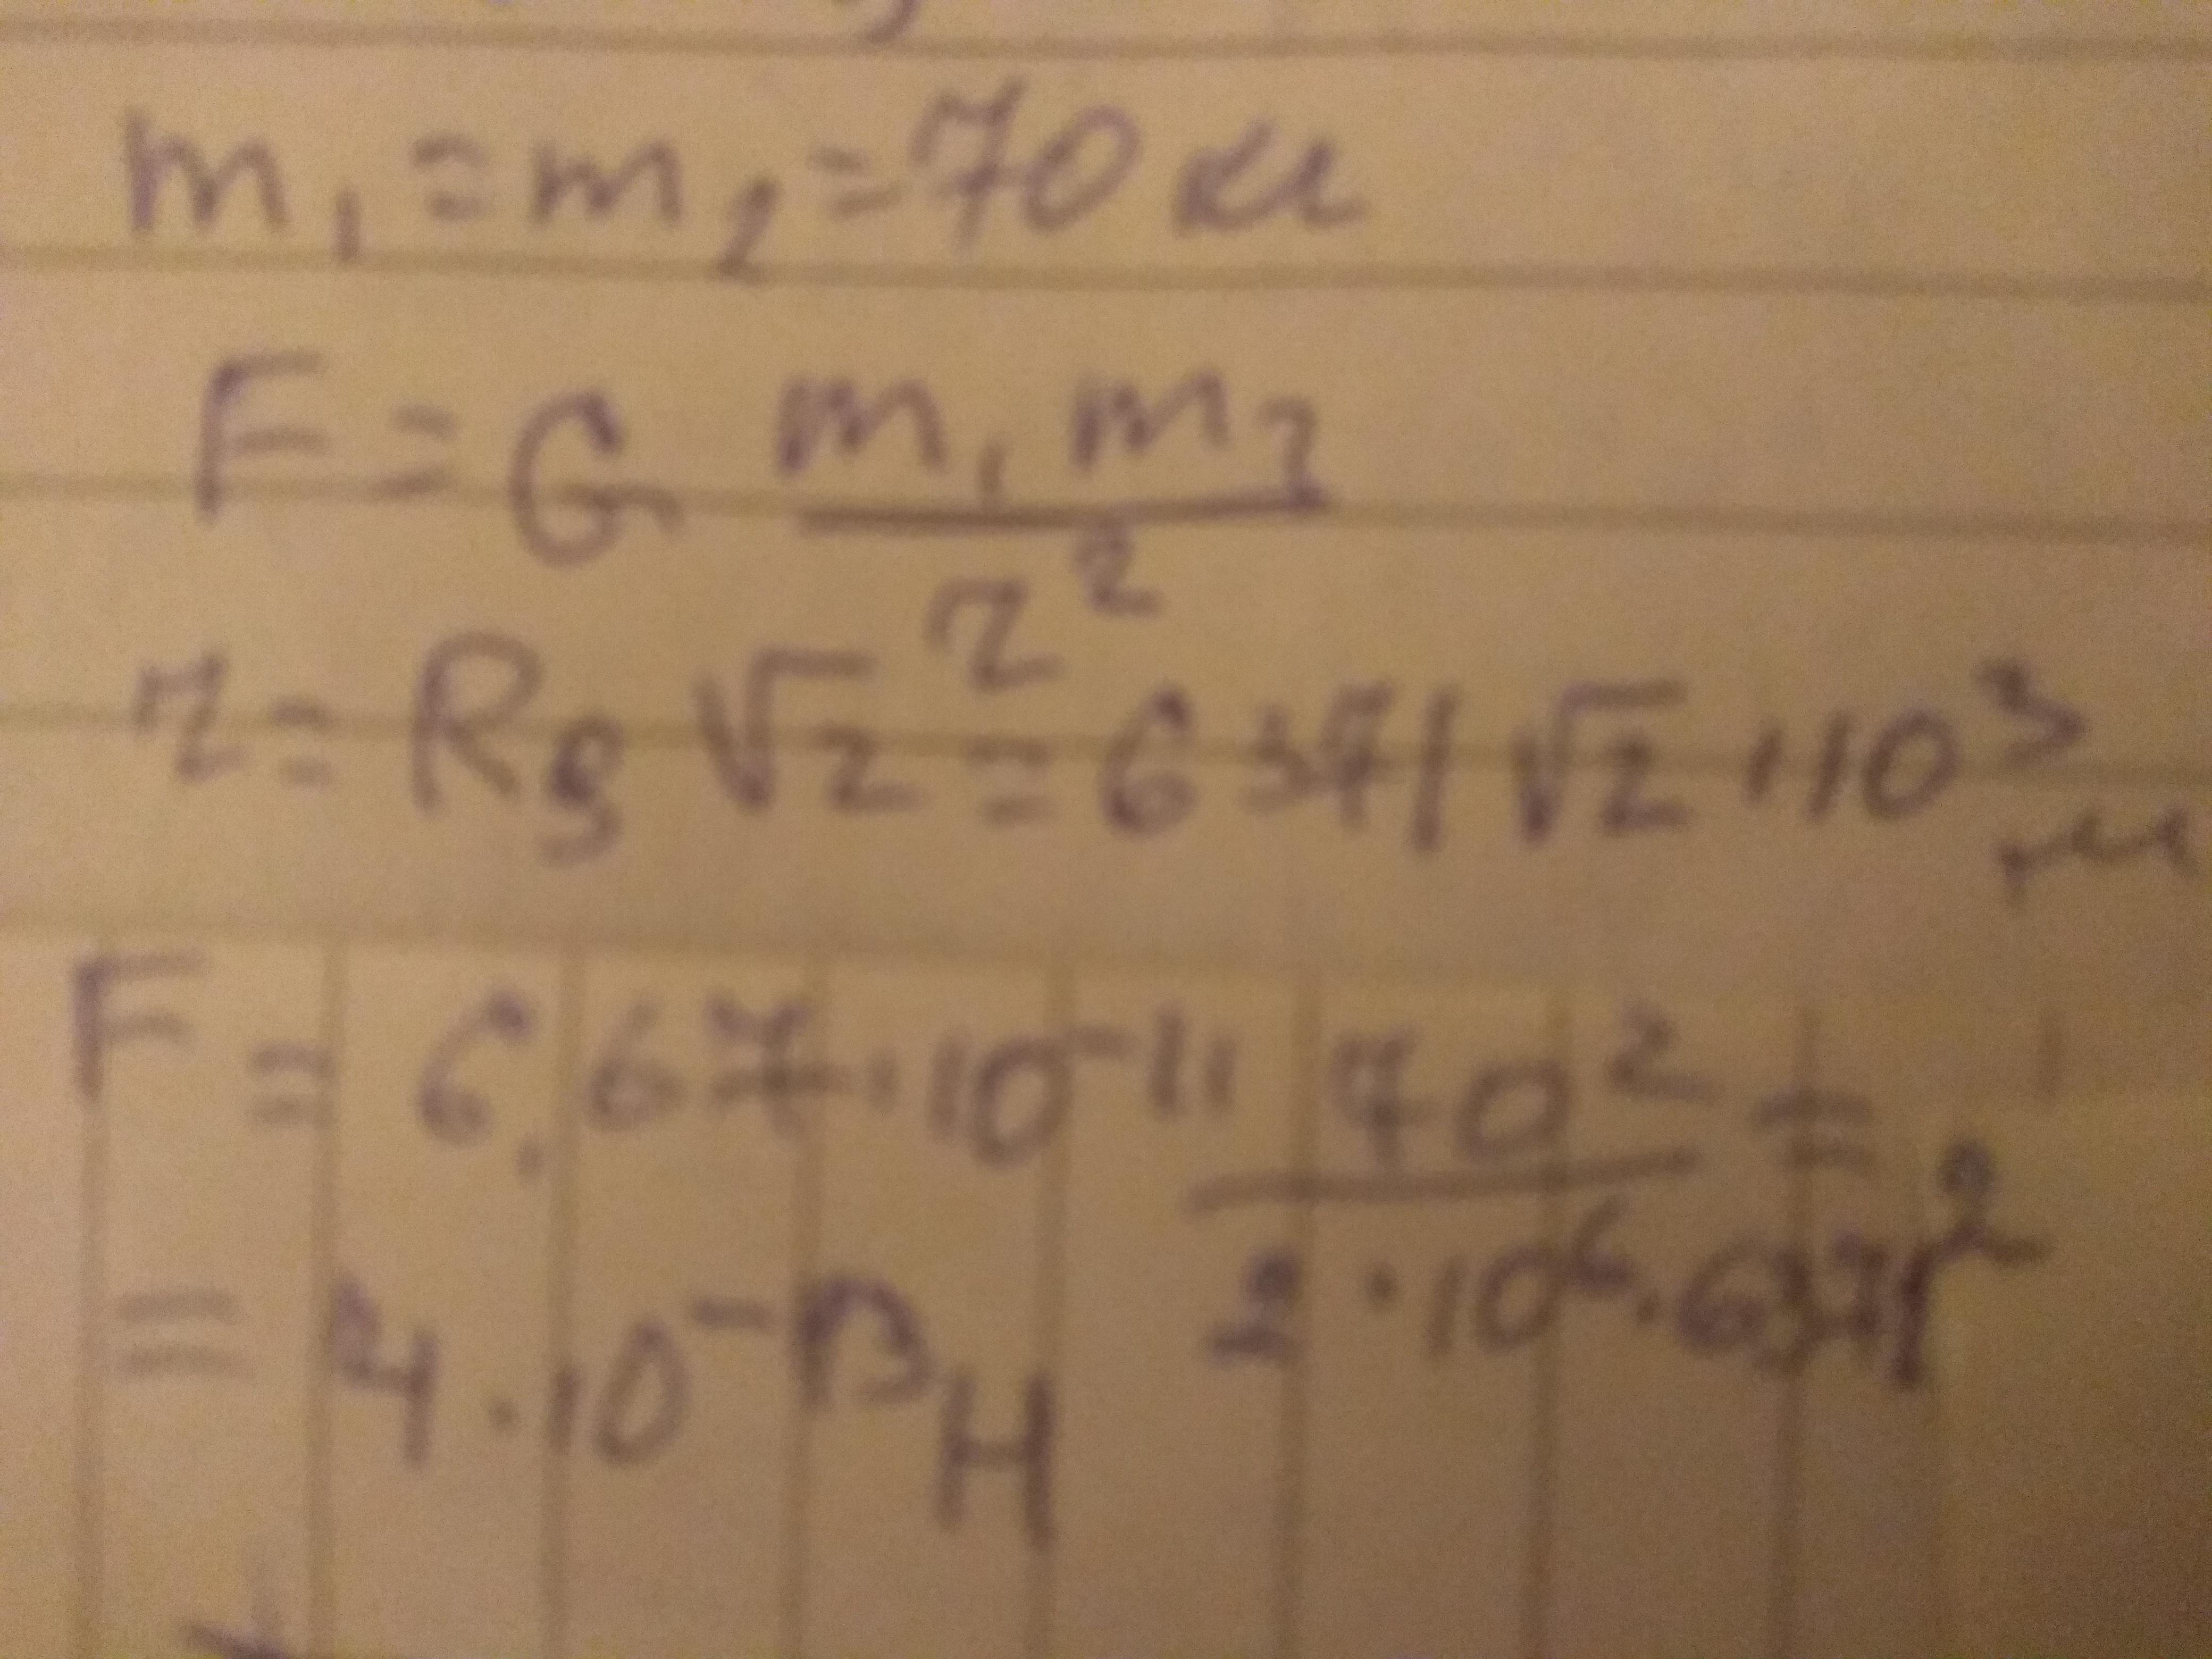 m₁ = m₂ = 70 кг
F = G m₁ m₂ / r²
r = R₃ √2 = 6371 √2 · 10³ м
F = 6,67 · 10⁻¹¹ 70² / 2 · 10⁶ · 6371² =
= 4 · 10⁻¹³ Н